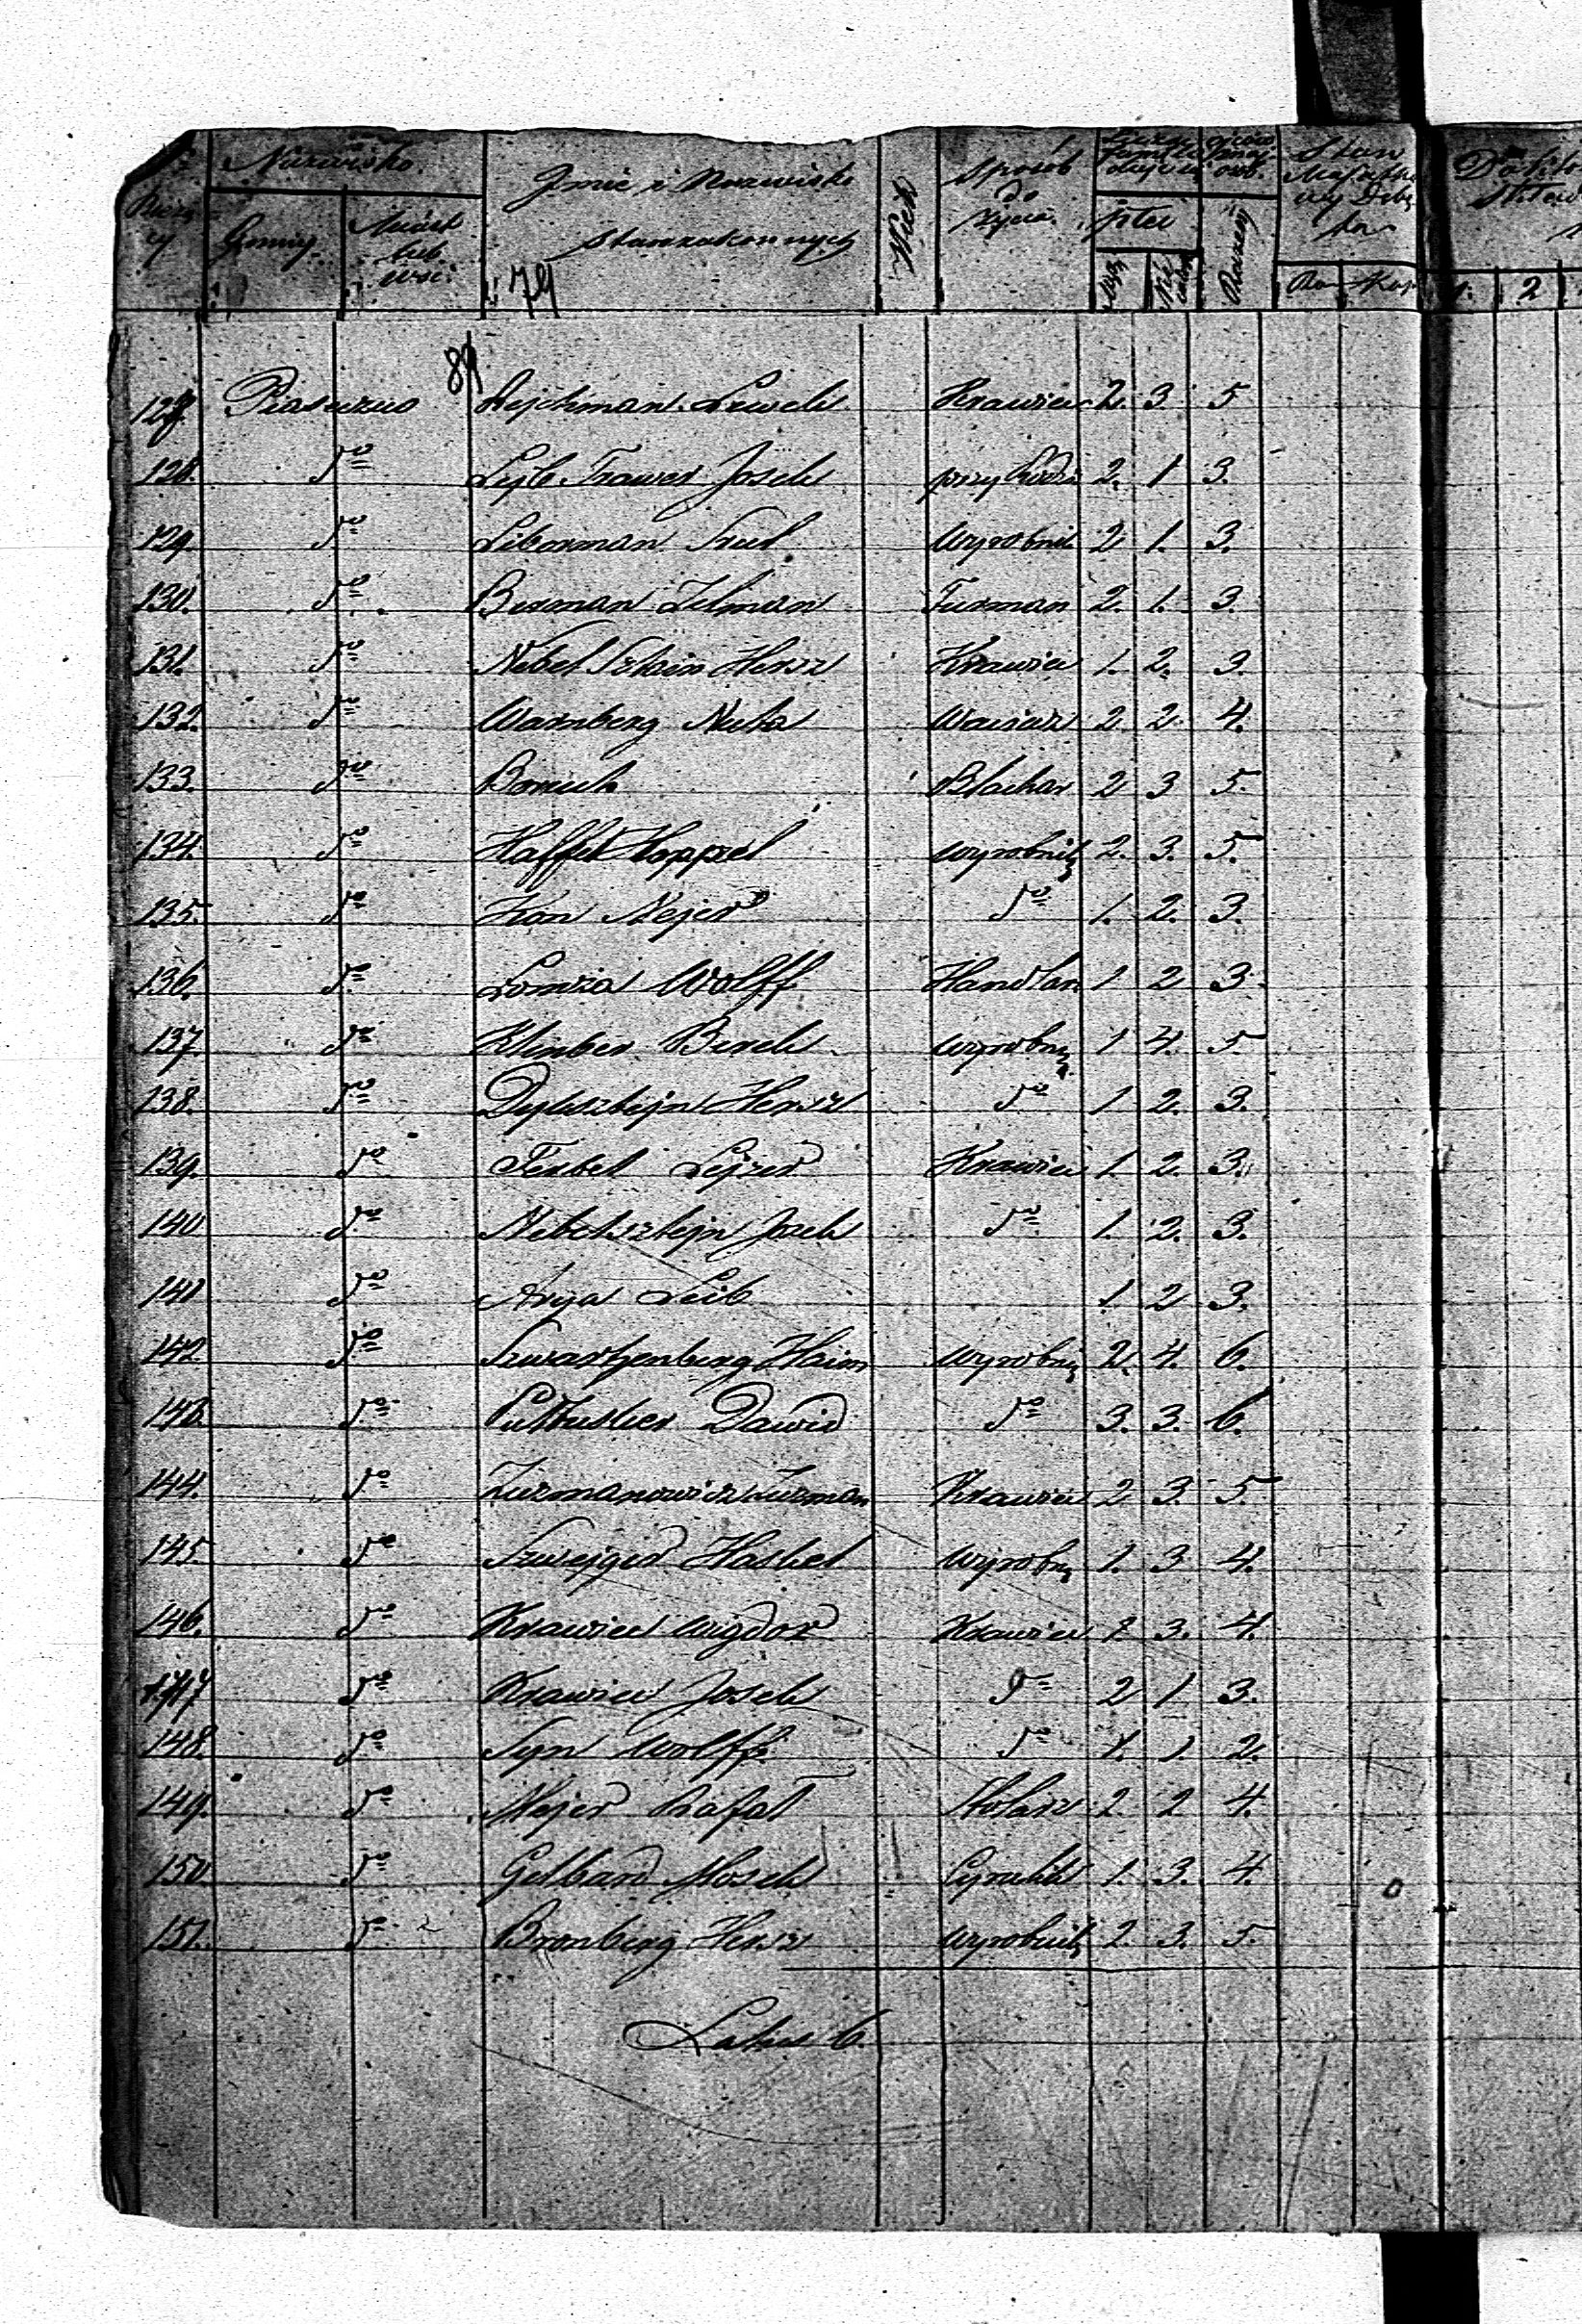 Nazwisko
Gminy
Miast lub wsi
Imie i Nazwisko
Starozakonnych
79
Wiek
Sposób do życia
płci
Razem
Stan
2
89
127 Piaseczno Rejchman Lewek Krawiec 2. 3. 5
128. do Lejb Trawer Josek przy 2. 1 3.
129. do Liberman Srul Wyrobnik 2 1. 3.
130. do Berman Zelman Furman 2. 1. 3.
131. do Nebel Sztein Hersz Krawiec 1. 2. 3.
132. do Warnberg Nuta 2 2. 4.
133. do Boruch Blachar 2 3 5.
134. do Haffel Hoppel wyrobnik 2. 3. 5.
135. do Kon Mejer do 1. 2. 3.
136. do Lomza Wolff Handlar 1 2 3.
137. do Klinber Berek wyrobn 1 4. 5.
138. do Dylsztejn Hersz do 1 2. 3.
139. do Ferbel Lejzer Krawiec 1 2. 3.
140 do Nebelsztejn Josek do 1. 2. 3.
141 do Arya Leib 1. 2 3.
142. do Szwartzenberg Haim wyrobni 2. 4. 6.
143. do Pułtusker Dawid do 3. 3. 6.
144. do Zurmanowicz Zurman Krawiec 2 3. 5.
145. do Szwejger Haskel Wyrobn 1. 3 4.
146. do Krawiec Wigdor Krawiec 1 3. 4.
147 do Krawiec Josek do 2 1 3.
148. do Syn Wolff do 1. 1. 2.
149. do Mejer Rafał Stolarz 2. 2 4.
150 do Gelbard Mosek Cyrulik 1. 3. 4.
151. do Bronberg Hersz wyrobnik 2. 3. 5.
Latus 6.